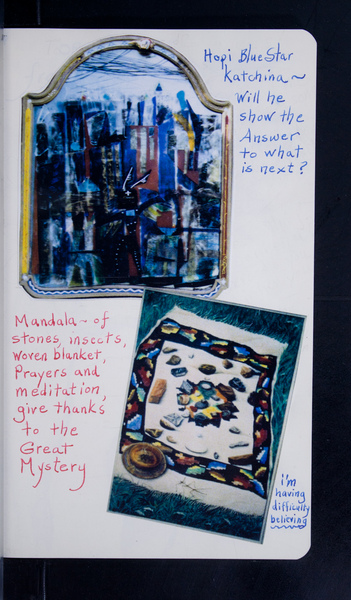 Hopi Blue Star
Katchina ~
Will he
show the
Answer
to what
is next?
Mandala ~ of
stones, insects,
woven blanket,
Prayers and
meditation,
give thanks
to the
Great
Mystery
i'm
having
difficulty
believing